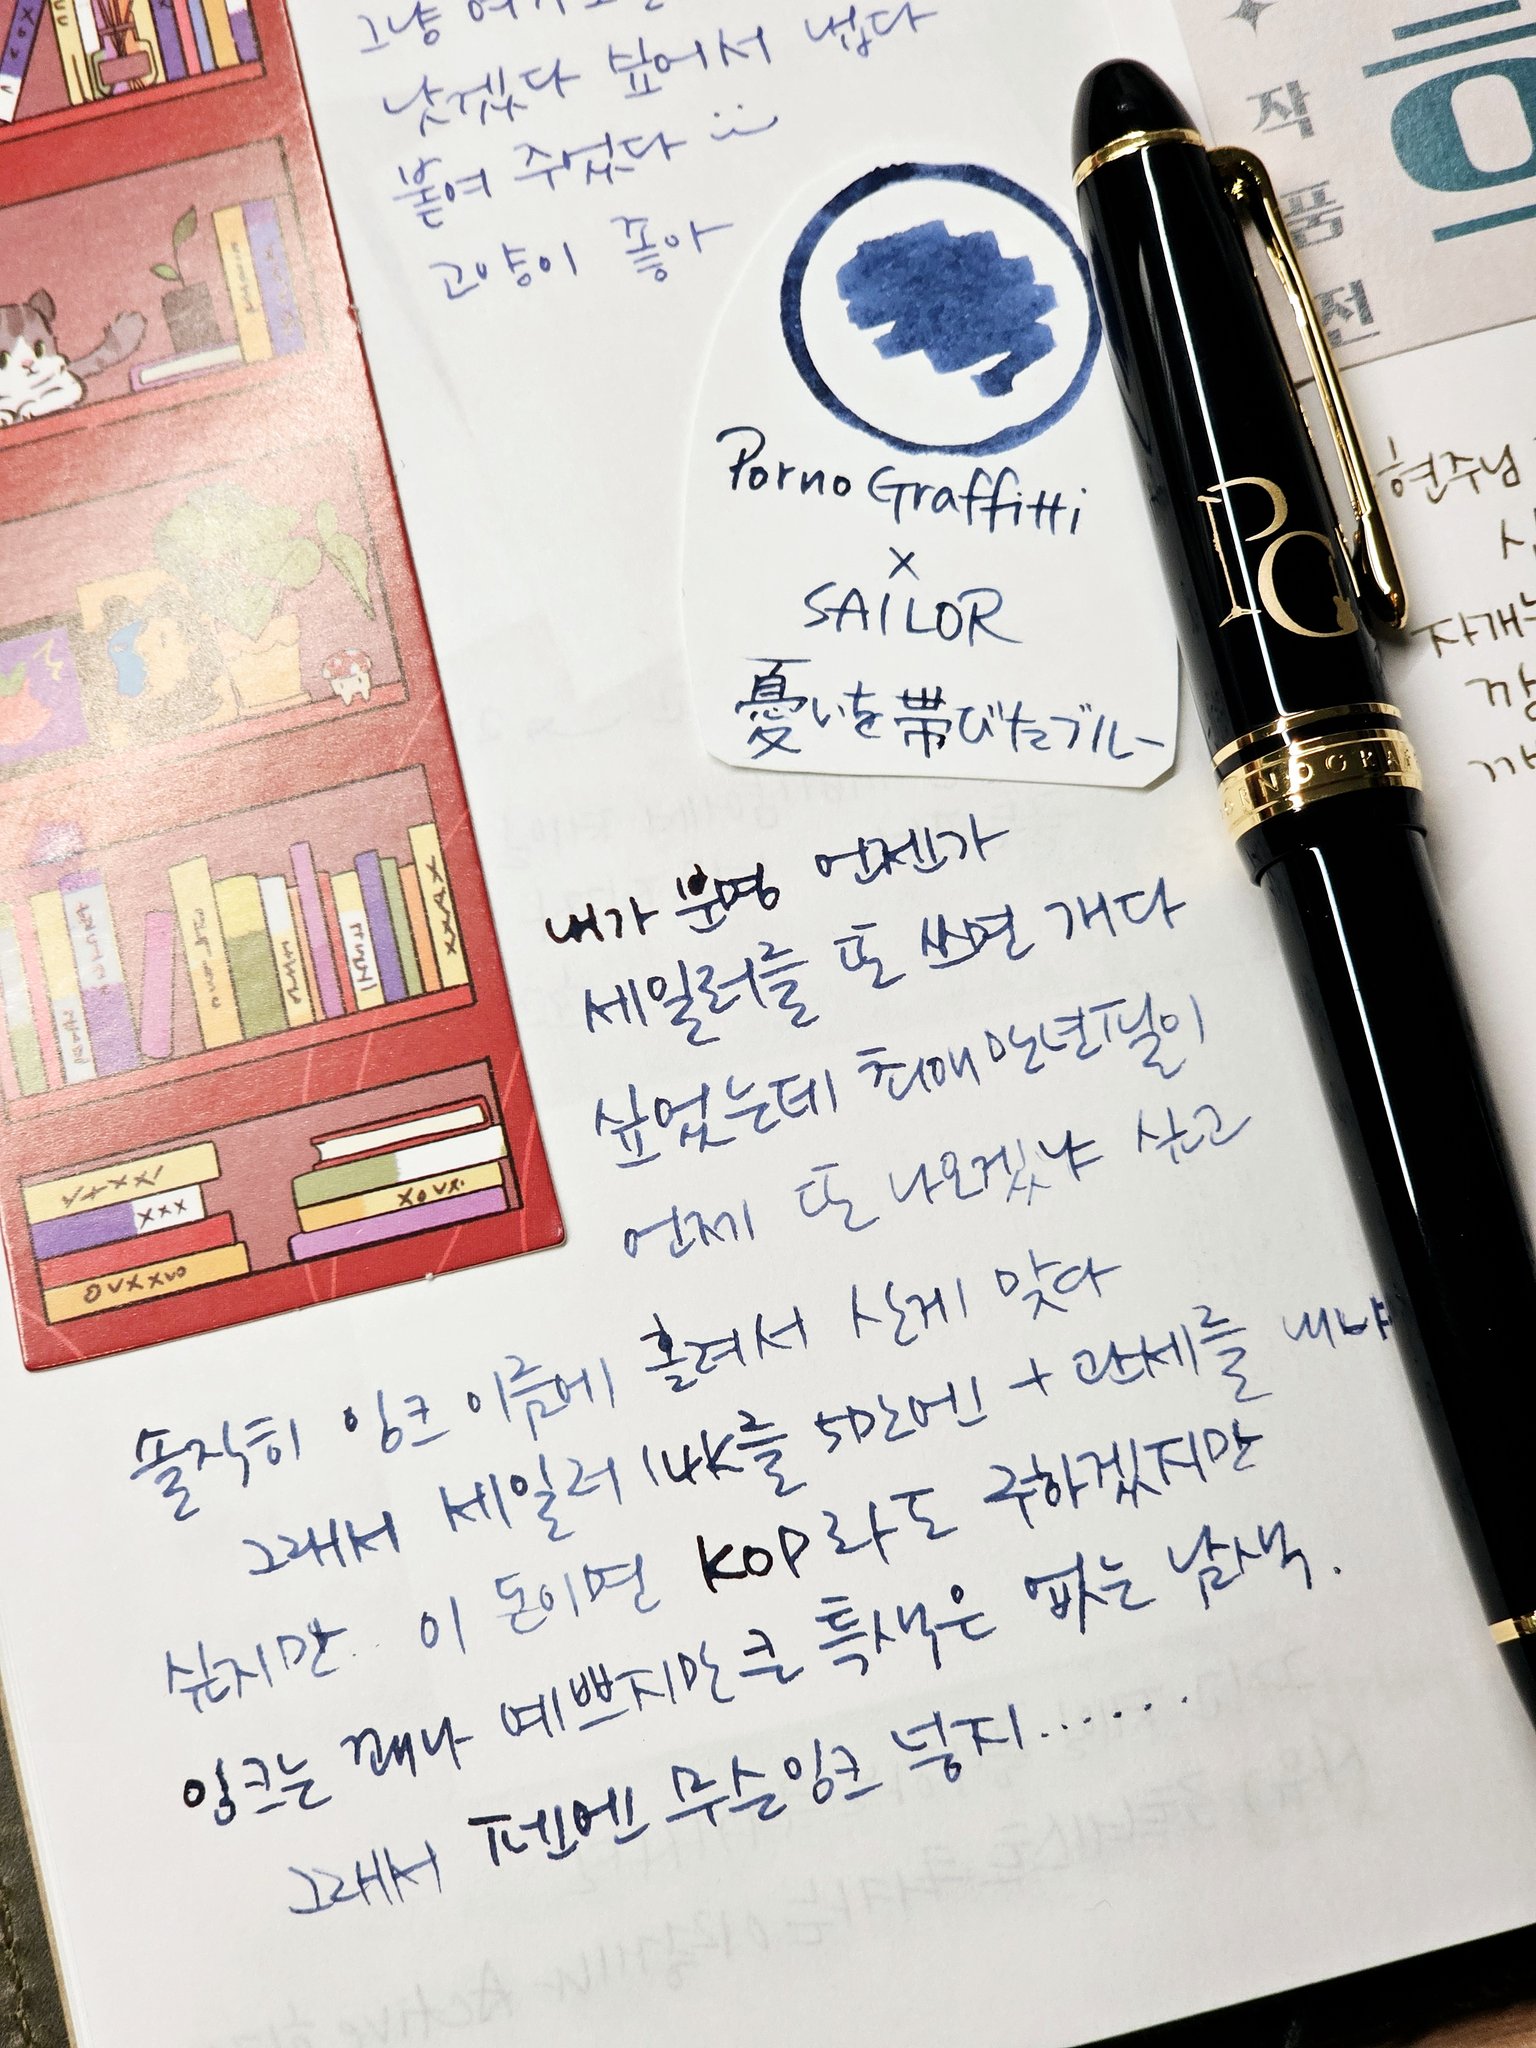 그냥 여기
낫겠다 싶어서 냅다
붙여 주었다 :)
고양이 좋아
작
품
전
Porno Graffitti
x
SAILOR
憂いを帯びたブルー
PG
현주님
자개
내가 분명 언젠가
세일러를 또 쓰면 개다
싶었는데 최애 만년필이
언제 또 나오겠냐 싶고
솔직히 잉크 이름에 홀려서 산게 맞다
그래서 세일러 14K를 5만엔 + 관세를 내냐
싶지만.. 이 돈이면 KOP라도 구하겠지만
잉크는 꽤나 예쁘지만 큰 특색은 없는 남색.
그래서 펜엔 무슨잉크 넣지......